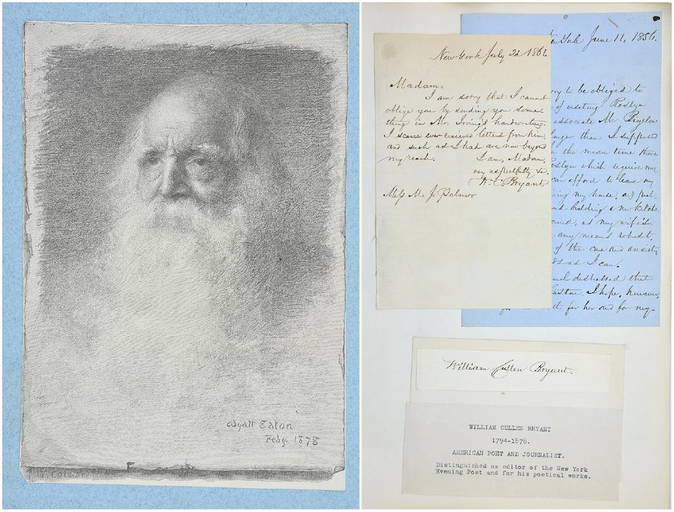 Wyatt Eaton
Feby. 1878
New York July 2d 1861
Madam.
I am sorry that I cannot
oblige you by sending you some
thing in Mr. Irving's handwriting.
I scarce ever received letters from him,
and such as I had are now beyond
my reach. I am, Madam,
very respectfully &c.
W. C. Bryant.
Miss M. J. Palmer
York June 11, 1856.
to be obliged to
of visiting Roslyn
Mr Bryant
than I supposed
the mean time there
Roslyn which require my
can afford to leave my
my house, and
and building a new kitchen
as my wife's
any means robust,
of the care and anxiety
as I can.
that
I hope, however,
for her and for my-
William Cullen Bryant.
WILLIAM CULLEN BRYANT
1794-1878.
AMERICAN POET AND JOURNALIST.
Distinguished as editor of the New York
Evening Post and for his poetical works.